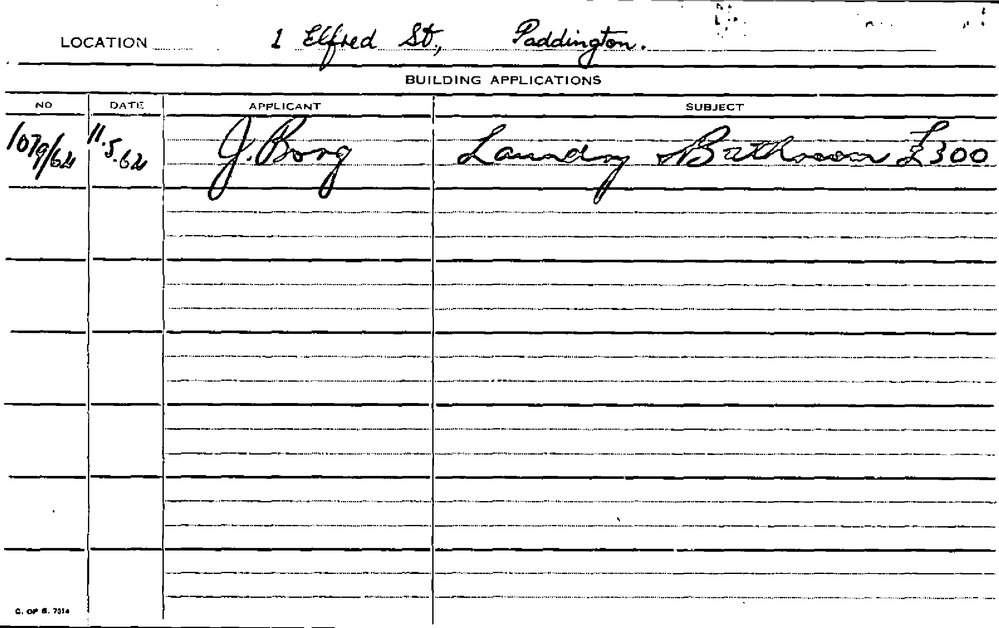 LOCATION 1 Elfred St., Paddington.
BUILDING APPLICATIONS
NO DATE APPLICANT SUBJECT
1079/62 11.5.62 J. Borg Laundry & Bathroom £300
C. OF S. 7314